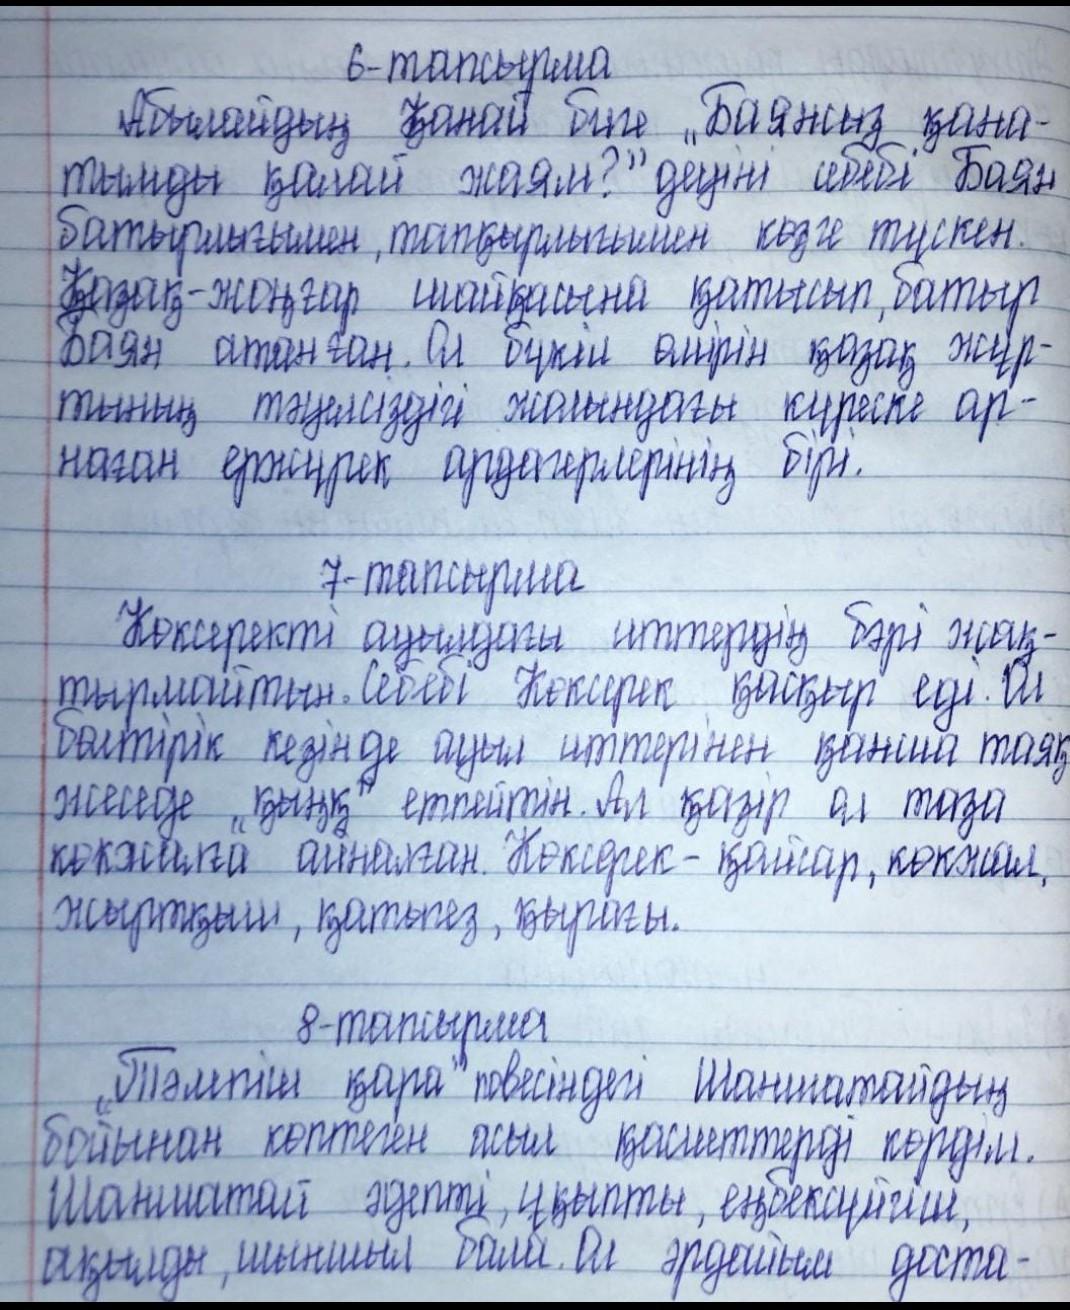 6-тапсырма
Абылайдың Қанай биге „Баянсыз қана-
тымды қалай жаям?” деуінің себебі Баян
батырлығымен, тапқырлығымен көзге түскен.
Қазақ-жоңғар шайқасына қатысып, батыр
Баян атанған. Ол бүкіл өмірін қазақ жұр-
тының тәуелсіздігі жолындағы күреске ар-
наған ержүрек ардагерлерінің бірі.
7-тапсырма
Көксеректі ауылдағы иттердің бәрі жақ-
тырмайтын. Себебі Көксерек қасқыр еді. Ол
бөлтірік кезінде ауыл иттерінен қанша таяқ
жеседе „қыңқ” етпейтін. Ал қазір ол таза
көкжалға айналған. Көксерек - қайсар, көкжал,
жыртқыш, қатыгез, қырағы.
8-тапсырма
„Тәмпіш қара” повесіндегі Шаншатайдың
бойынан көптеген асыл қасиеттерді көрдім.
Шаншатай әдепті, ұқыпты, еңбексүйгіш,
ақылды, шыншыл бала. Ол әрдайым доста-